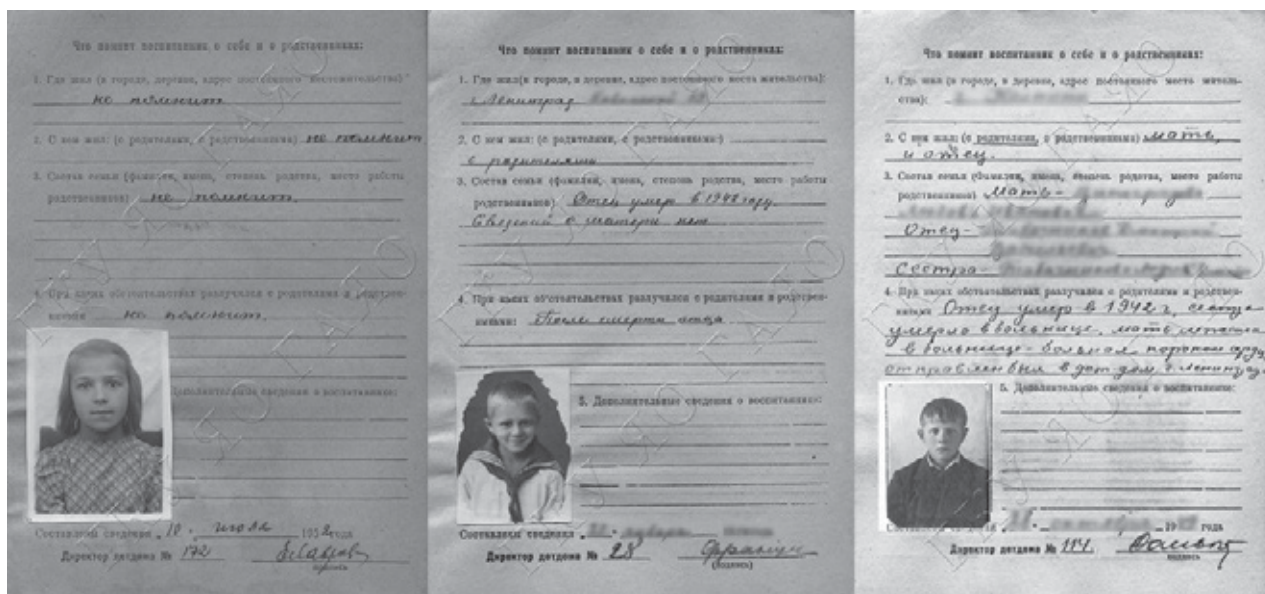 Что помнит воспитанник о себе и о родственниках:
1. Где жил (в городе, деревне, адрес постоянного местожительства)
не помнит
2. С кем жил: (с родителями, с родственниками) не помнит
3. Состав семьи (фамилия, имена, степень родства, место работы
родственников) не помнит.
4. При каких обстоятельствах разлучился с родителями и родствен-
никами не помнит.
Дополнительные сведения о воспитаннике:
Составлены сведения „10“ июля 1952 года
Директор детдома № 172
подпись
Что помнит воспитанник о себе и о родственниках:
1. Где жил (в городе, в деревне, адрес постоянного места жительства):
г. Ленинград
2. С кем жил: (с родителями, с родственниками)
с родителями
3. Состав семьи (фамилия, имена, степень родства, место работы
родственников) Отец умер в 1942 году.
Сведений о матери нет
4. При каких обстоятельствах разлучился с родителями и родствен-
никами: После смерти отца
5. Дополнительные сведения о воспитаннике:
Составлены сведения
Директор детдома № 28
(подпись)
Что помнит воспитанник о себе и о родственниках:
1. Где жил (в городе, в деревне, адрес постоянного место житель-
ства):
2. С кем жил: (с родителями, с родственниками) мать
и отец.
3. Состав семьи (фамилия, имена, степень родства, место работы
родственников) Мать-
Отец-
Сестра-
4. При каких обстоятельствах разлучился с родителями и родствен-
никами Отец умер в 1942 г, сестра
умерла в больнице, мать
в больнице - больная пороком
отправлен был в дет дом г. Ленинграда
5. Дополнительные сведения о воспитаннике:
19 года
Директор детдома № 114
подпись
ГКУ ЯО ГАЯО